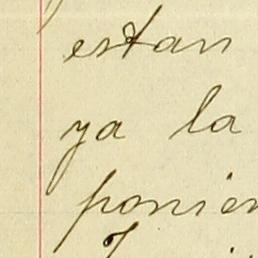 estan
ya la
ponien